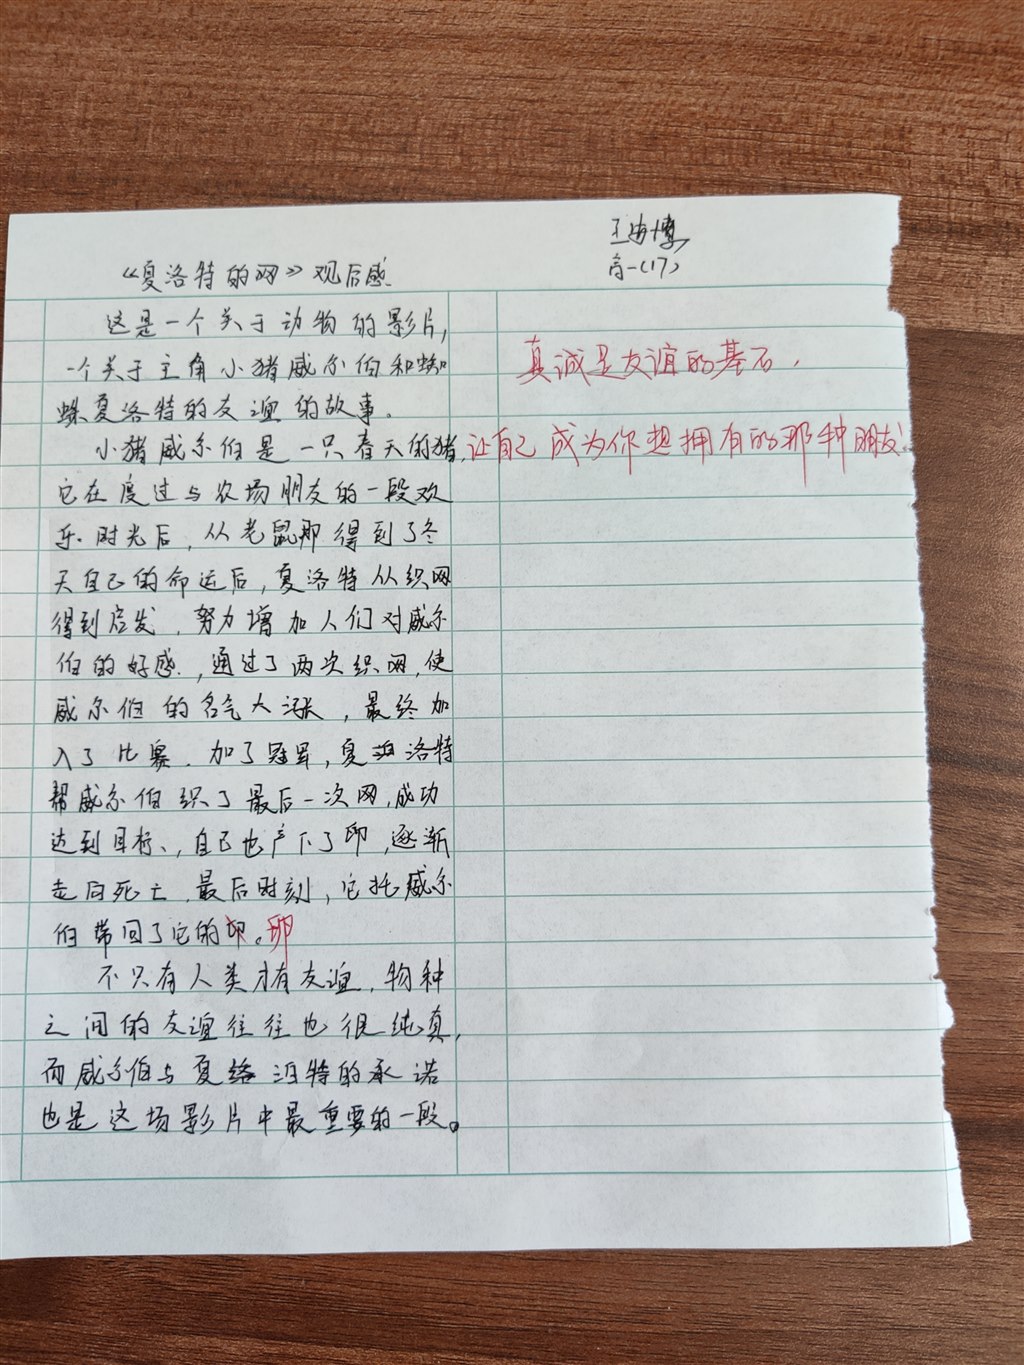 王博
高一(17)
《夏洛特的网》观后感
这是一个关于动物的影片,
一个关于主角小猪威尔伯和蜘
蛛夏洛特的友谊的故事。
小猪威尔伯是一只春天的猪,
它在度过与农场朋友的一段欢
乐时光后,从老鼠那得到了冬
天自己的命运后,夏洛特从织网
得到启发,努力增加人们对威尔
伯的好感,通过了两次织网,使
威尔伯的名气大涨,最终加
入了比赛.加了冠军,夏洛特
帮威尔伯织了最后一次网,成功
达到目标,自己也产下了卵,逐渐
走向死亡,最后时刻,它托威尔
伯带回了它的卵。卵
不只有人类才有友谊,物种
之间的友谊往往也很纯真,
而威尔伯与夏洛特的承诺
也是这场影片中最重要的一段。
真诚是友谊的基石,
让自己成为你想拥有的那种朋友。